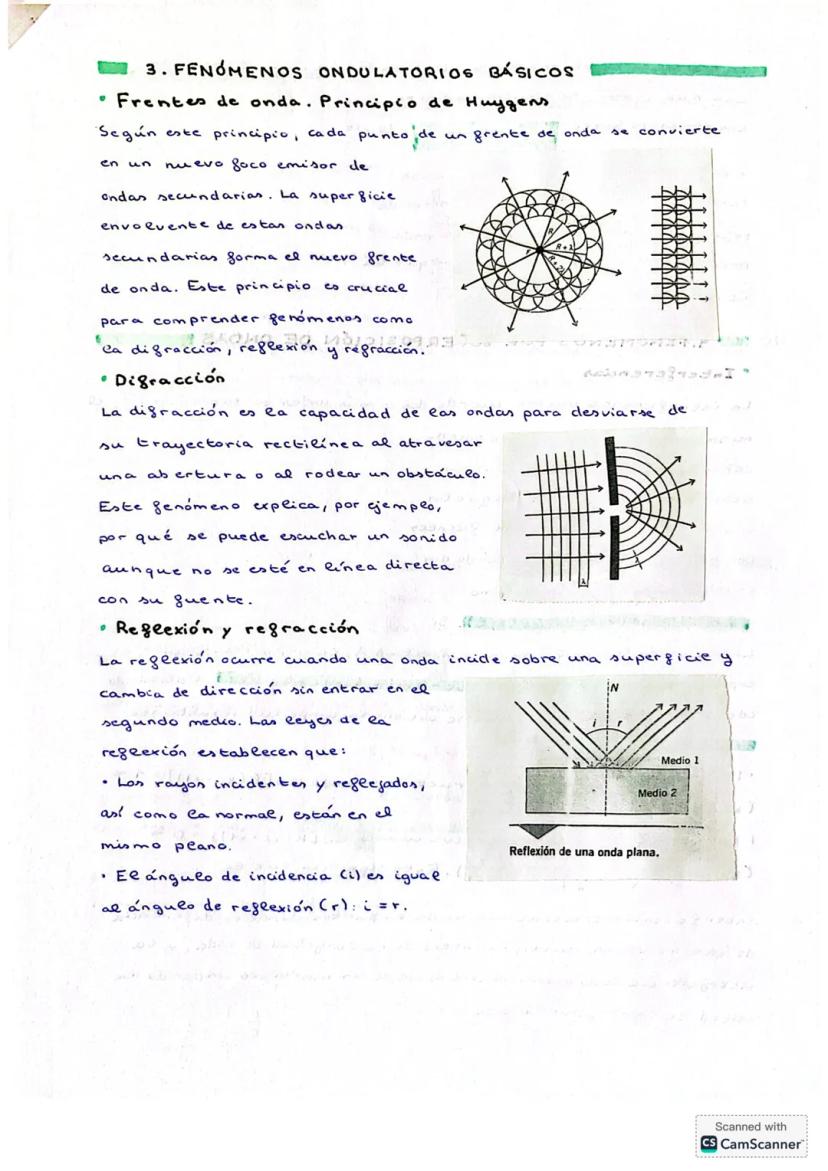 3. FENÓMENOS ONDULATORIOS BÁSICOS
• Frentes de onda. Principio de Huygens
Según este principio, cada punto de un frente de onda se convierte
en un nuevo foco emisor de
ondas secundarias. La superficie
envolvente de estas ondas
secundarias forma el nuevo frente
de onda. Este principio es crucial
para comprender fenómenos como
la difracción, reflexión y refracción.
R
R+λ
R+2λ
r
• Difracción
La difracción es la capacidad de las ondas para desviarse de
su trayectoria rectilínea al atravesar
una abertura o al rodear un obstáculo.
Este fenómeno explica, por ejemplo,
por qué se puede escuchar un sonido
aunque no se esté en línea directa
con su fuente.
λ
λ
• Reflexión y refracción
La reflexión ocurre cuando una onda incide sobre una superficie y
cambia de dirección sin entrar en el
segundo medio. Las leyes de la
reflexión establecen que:
• Los rayos incidentes y reflejados,
así como la normal, están en el
mismo plano.
• El ángulo de incidencia (i) es igual
al ángulo de reflexión (r): i = r.
N
i r
Medio 1
Medio 2
Reflexión de una onda plana.
Scanned with
CS CamScanner